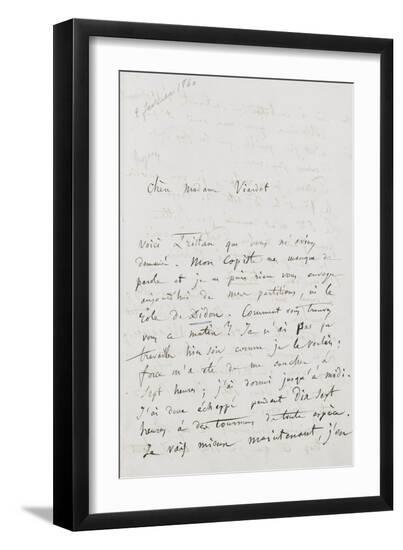 février 1860
Chère Madame Viardot
Voici Tristan que vous m'aviez
demandé. Mon Copiste me manque de
parole et je ne puis rien vous envoyer
aujourd'hui de mes partitions, ni le
rôle de Didon. Comment vous trouvez
vous ce matin? Je n'ai pas pu
travailler hier soir comme je le voulais;
force m'a été de me coucher à
sept heures; j'ai dormi jusqu'à midi.
J'ai donc échappé pendant dix sept
heures à des tourmens de toute espèce.
Je vais mieux maintenant, j'en